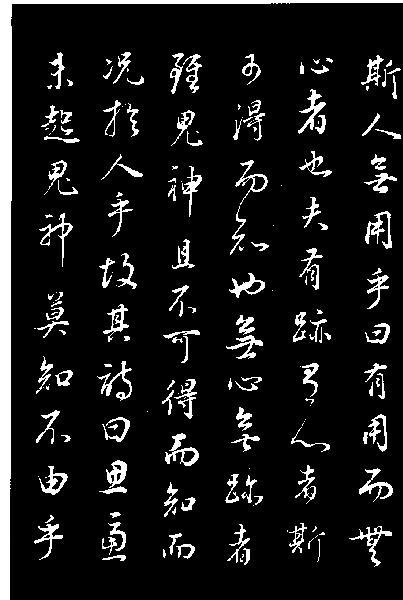 斯人無用乎曰有用而無
心者也夫有跡有心者斯
可得而知也無心無跡者
雖鬼神且不可得而知而
況於人乎故其詩曰思慮
未起鬼神莫知不由乎